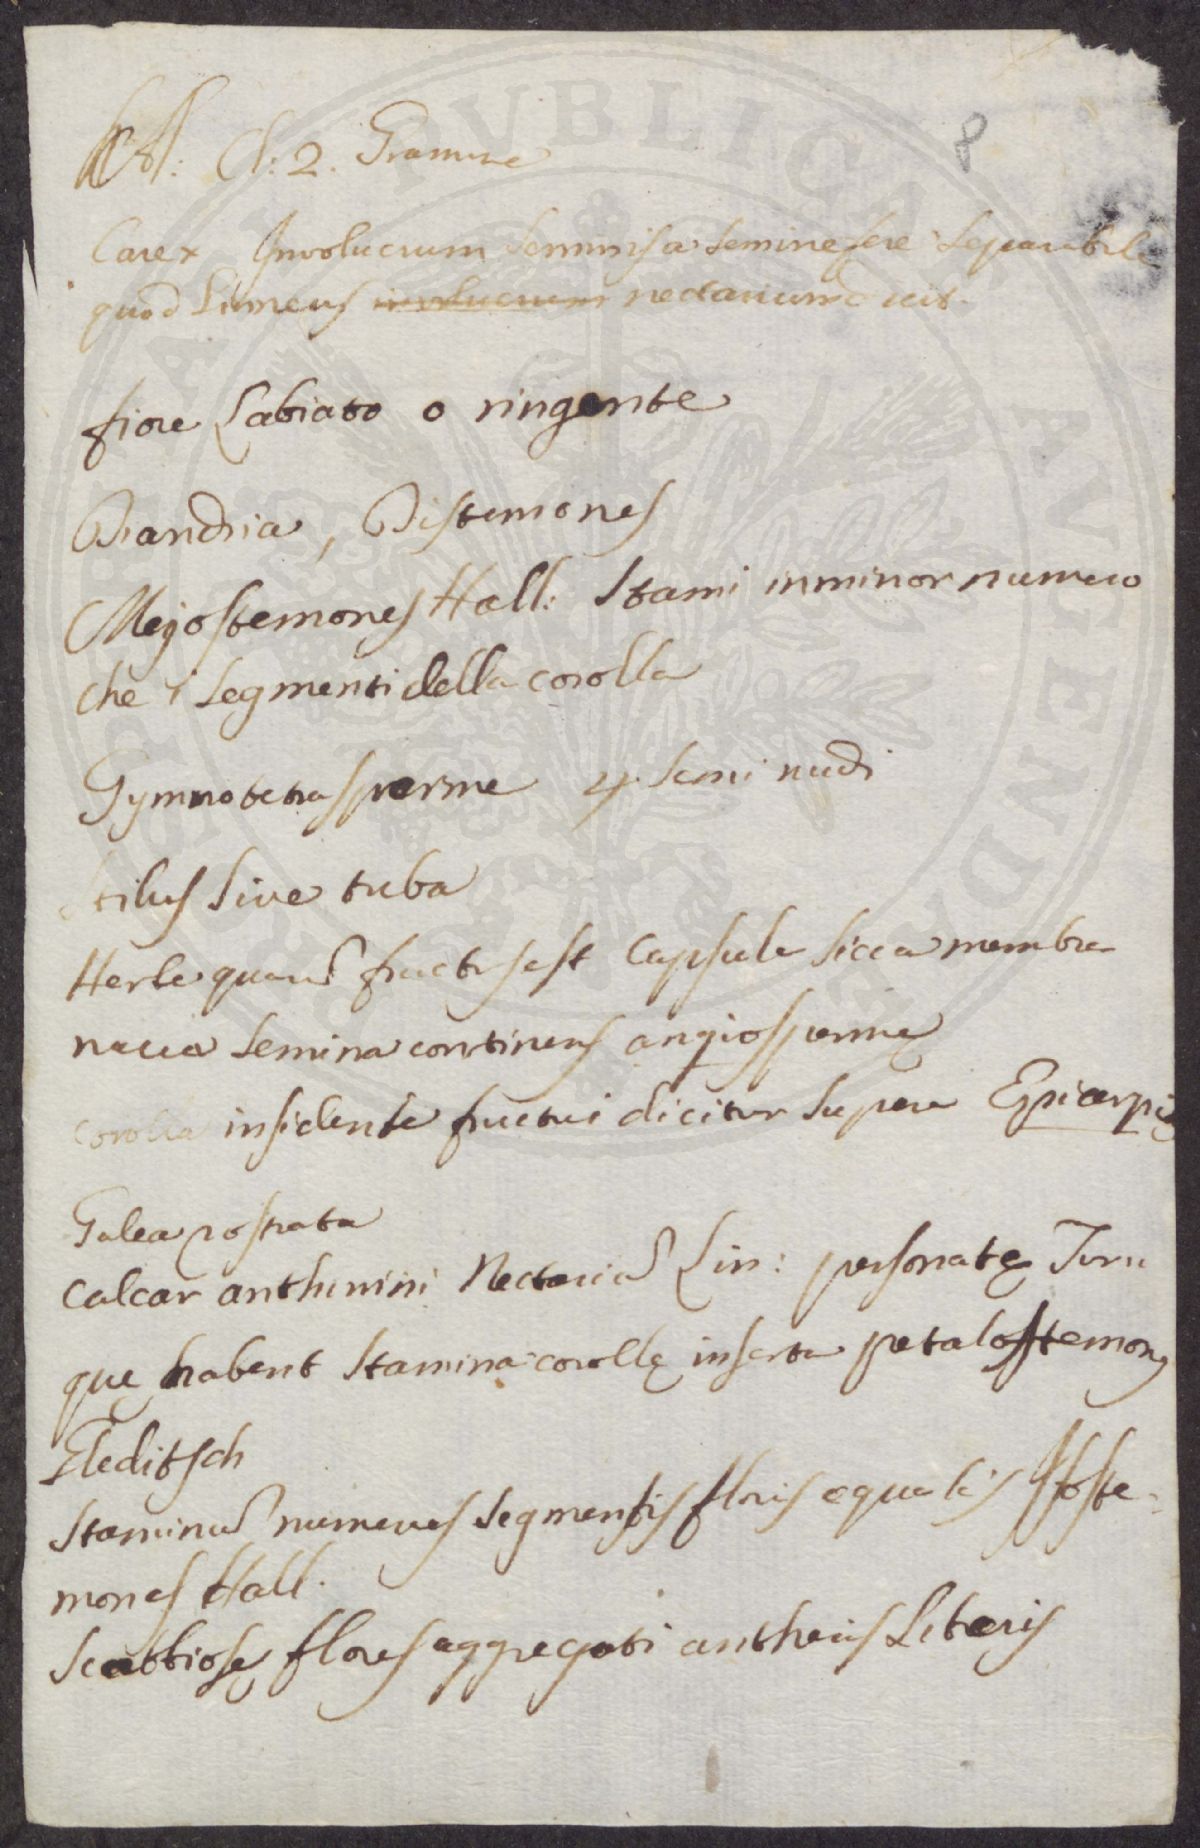 Cl: 2. Gramine 8
Carex Involucrum seminis a semine fere separabile
quod Linneus involucrum nectarium dicit.
fiore Labiato o ringente
Diandria, Distemones
Mejostemones Hall: Stami in minor numero
che i segmenti della corolla
Gymnotetrasperme 4 semi nudi
Stilus sive tuba
Herbe quarum fructus est capsula sicca membra
nacea semina continens angiospermę
corolla insidente fructui dicitur supera Epicarpię
Galea rostrata
Calcar anthirrini Nectarium Lin: personatę Turn
quę habent stamina corollę inserta petalostemones
Gleditsch
Staminum numerus segmentis floris equalis Isoste-
mones Hall.
Scabiosę flores aggregati antheris Liberis